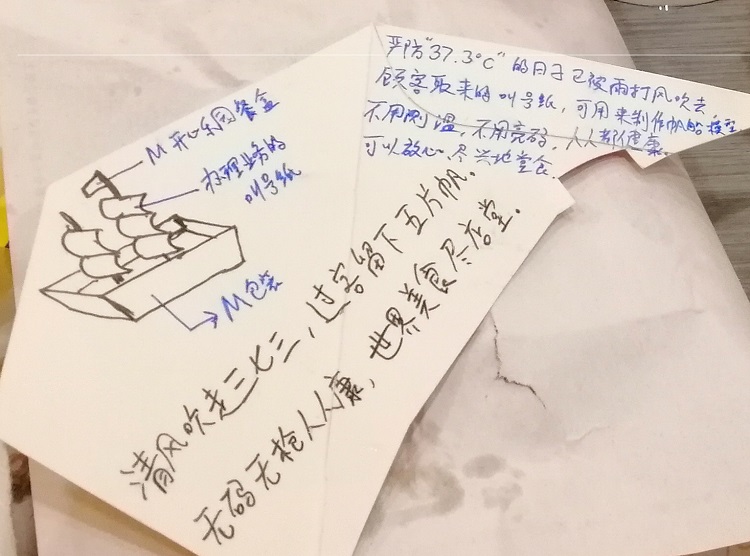 严防“37.3°C”的日子已被雨打风吹去,
顾客取来的叫号纸,可用来制作帆的模型
不用测温,不用亮码,人人都健康,
可以放心、尽兴地堂食.
M开心乐园餐盒
办理业务的
叫号纸
M包装
清风吹走三七三,过客留下五片帆.
无码无枪人人康,世界美食尽店堂.